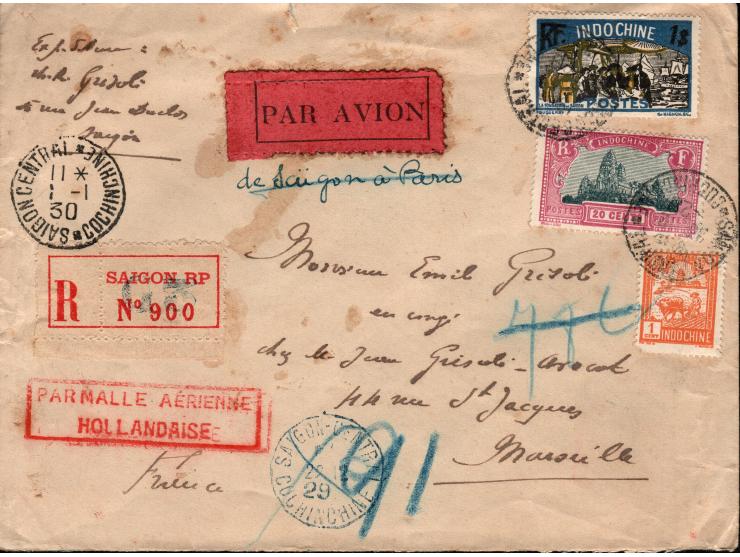 Expéditeur :
Grisoli
rue Jean Duclos
Saigon
PAR AVION
de Saigon à Paris
RF INDOCHINE 1$
POSTES
INDOCHINE
R F
POSTES 20 CENTS
1
CENT
INDOCHINE
SAIGON CENTRAL * COCHINCHINE *
11 *
1 - 1
30
R
SAIGON RP
Nº 900
PAR MALLE AÉRIENNE
HOLLANDAISE
Monsieur Emile Grisoli
en congé
chez Me Jean Grisoli - Avocat
44 rue St Jacques
Marseille
France
SAIGON-CENTRAL
29
COCHINCHINE
91